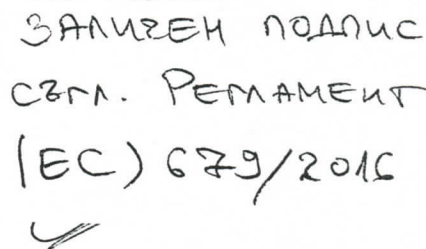 ЗАЛИЧЕН ПОДПИС
СЪГЛ. РЕГЛАМЕНТ
(ЕС) 679/2016